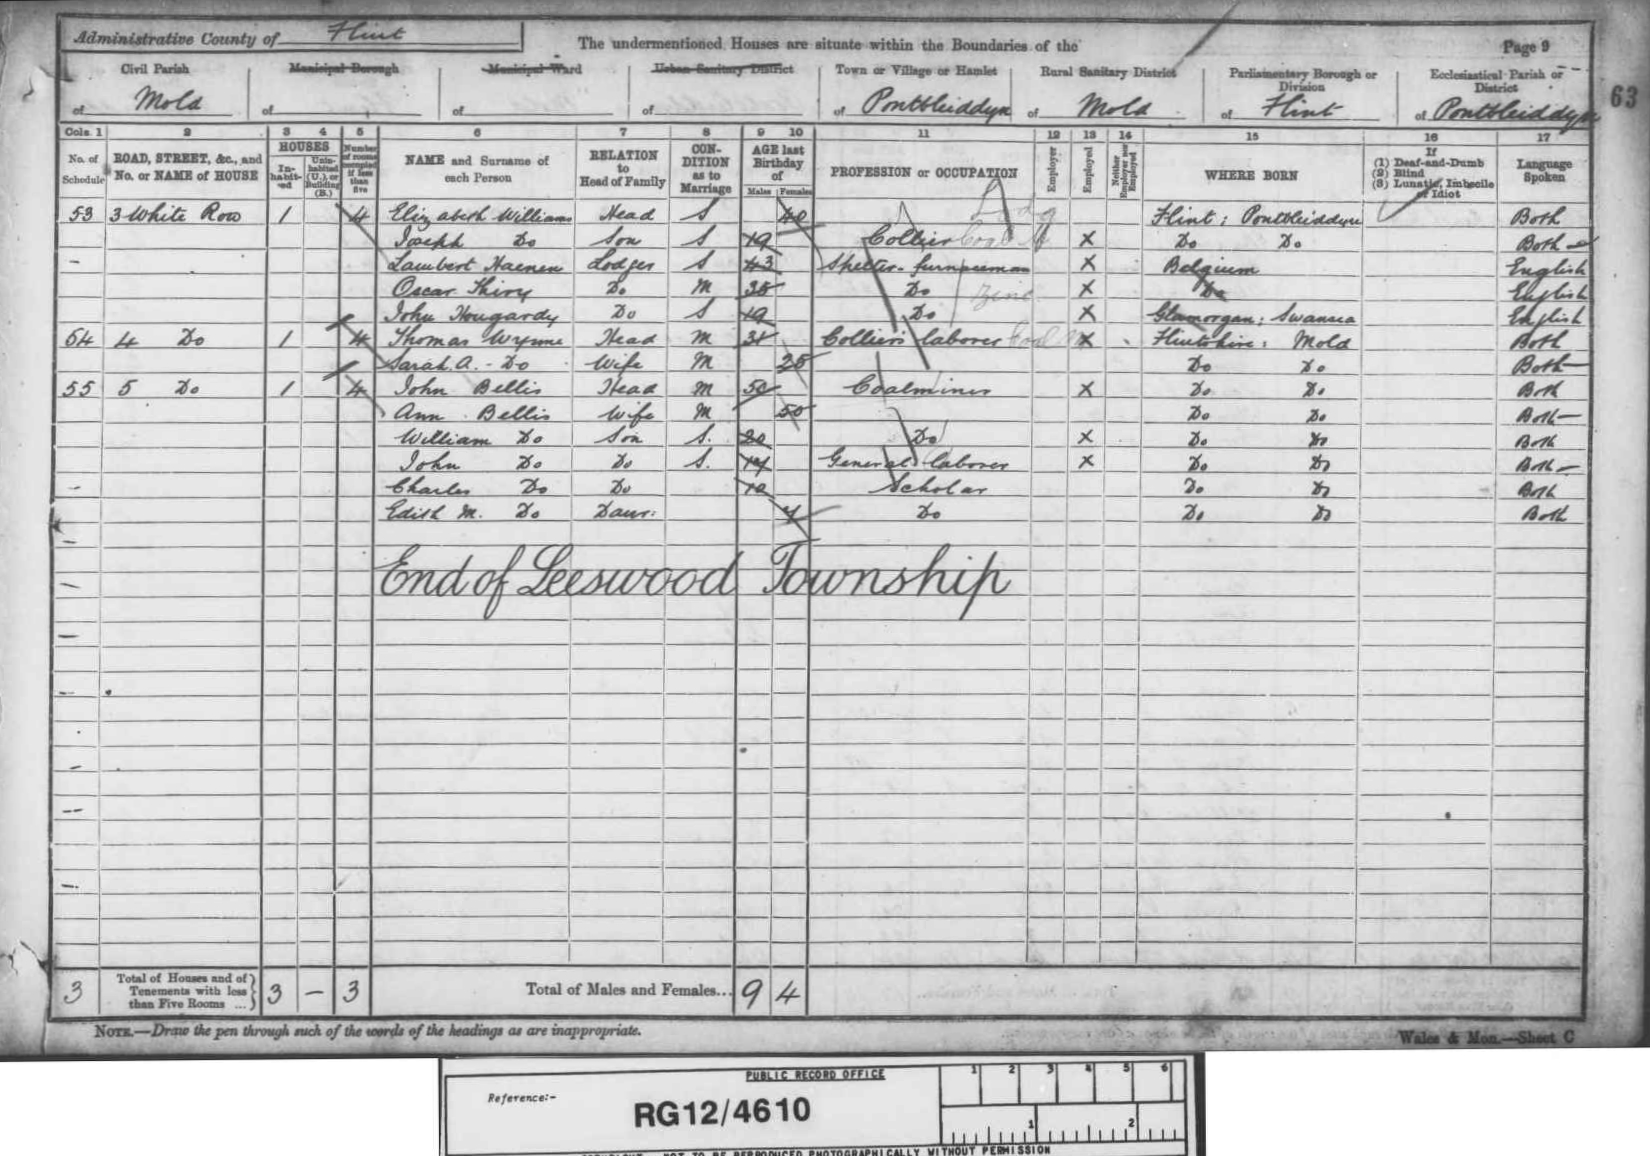 Administrative County of Flint
The undermentioned Houses are situate within the Boundaries of the
Page 9
63
Civil Parish of Mold
Municipal Borough of
Municipal Ward of
Urban Sanitary District of
Town or Village or Hamlet of Pontbleiddyn
Rural Sanitary District of Mold
Parliamentary Borough or Division of Flint
Ecclesiastical Parish or District of Pontbleiddyn
Cols. 1 2 3 4 5 6 7 8 9 10 11 12 13 14 15 16 17
No. of Schedule
ROAD, STREET, &c., and No. or NAME of HOUSE
HOUSES
In-habit-ed
Unin-habited (U.), or Building (B.)
Number of rooms occupied if less than five
NAME and Surname of each Person
RELATION to Head of Family
CON-DITION as to Marriage
AGE last Birthday of
Males Females
PROFESSION or OCCUPATION
Employer
Employed
Neither Employer nor Employed
WHERE BORN
If
(1) Deaf-and-Dumb
(2) Blind
(3) Lunatic, Imbecile or Idiot
Language Spoken
53 3 White Row 1 4 Elizabeth Williams Head S 40 Flint; Pontbleiddyn Both
Joseph Do Son S 19 Collier X Do Do Both
Lambert Haenen Lodger S 43 Spelter furnaceman X Belgium English
Oscar Thiry Do M 35 Do Zinc X Do English
John Hougardy Do S 19 Do X Glamorgan; Swansea English
54 4 Do 1 4 Thomas Wynne Head M 31 Colliers laborer X Flintshire; Mold Both
Sarah A. Do Wife M 25 Do Do Both
55 5 Do 1 4 John Bellis Head M 50 Coalminer X Do Do Both
Ann Bellis Wife M 50 Do Do Both
William Do Son S. 20 Do X Do Do Both
John Do Do S. General laborer X Do Do Both
Charles Do Do Scholar Do Do Both
Edith M. Do Daur: 7 Do Do Do Both
End of Leeswood Township
3 Total of Houses and of Tenements with less than Five Rooms ... 3 — 3 Total of Males and Females... 9 4
NOTE.—Draw the pen through such of the words of the headings as are inappropriate.
Wales & Mon.—Sheet C
PUBLIC RECORD OFFICE
1 2 3 4 5 6
Reference:-
RG12/4610
1 2
NOT TO BE REPRODUCED PHOTOGRAPHICALLY WITHOUT PERMISSION